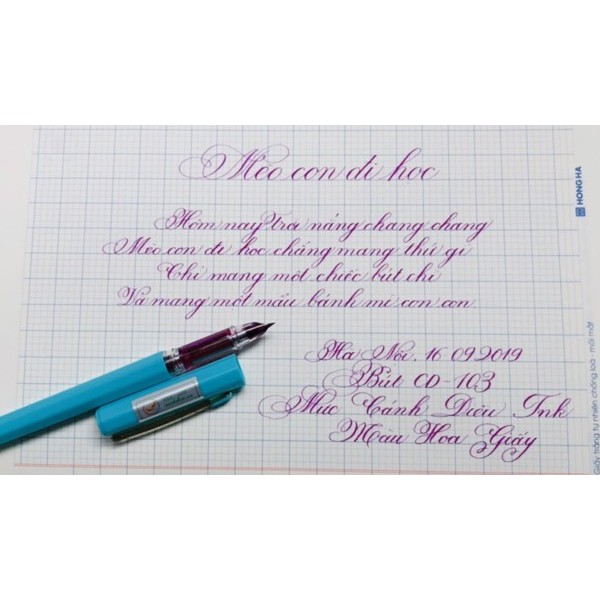 Mèo con đi học
Hôm nay trời nắng chang chang
Mèo con đi học chẳng mang thứ gì
Chỉ mang một chiếc bút chì
Và mang một mẩu bánh mì con con
Hà Nội, 16 09 2019
Bút CD-103
Mực Cánh Diều Ink
Màu Hoa Giấy
HONG HA
Giấy trắng tự nhiên chống loá - mỏi mắt